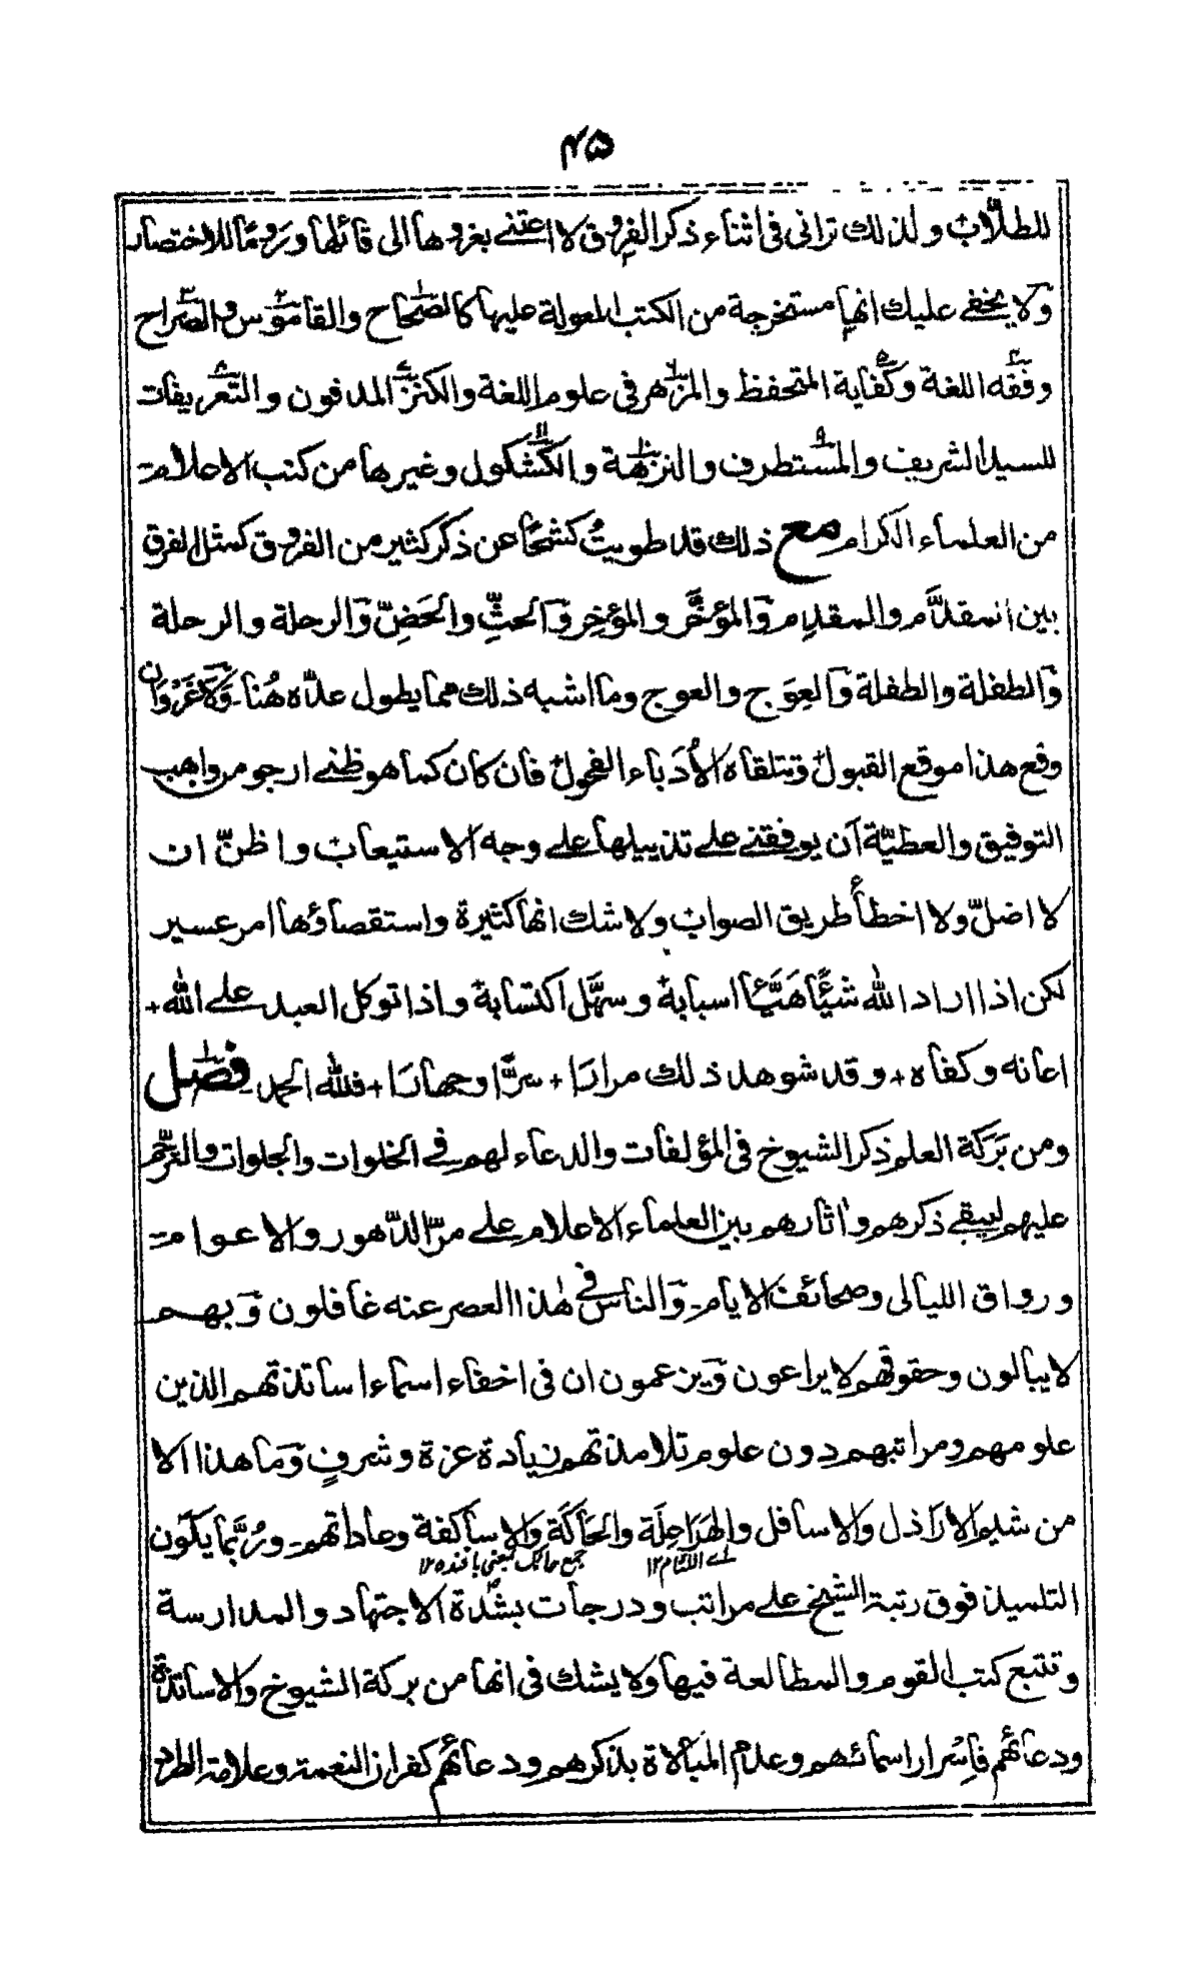 ۴۵
للطلّاب ولذلك ترانى فى اثناء ذكر الفروق لا اعتنے بغروها الى قائلها ورَومًا للاختصار
وَلا يخفے عليك انها مستخرجة من الكتب المعولة عليها كالصّحاح والقاموس والصّراح
وفقه اللغة وكفاية المتحفظ والمزهر فى علوم اللغة والكنز المدفون والتّعريفات
للسيد الشريف والمستطرف والنزهة والكشكول وغيرها من كتب الاعلام
من العلماء الكرام مع ذلك قد طويتُ كشحًا عن ذكر كثير من الفروق كمثل الفرق
بين المقدَّم والمقدِم وَالمؤخَّر والمؤخِر وَالحثِّ والحَضِّ وَالرحلة والرحلة
وَالطفلة والطفلة وَالعِوَج والعوج وما اشبه ذلك مما يطول عدّه هُنا۔ وَلَا غَرْوَان
وقع هذا موقع القبول وَتتلقاه الأدَباء الفحول فان كان كما هو ظنے ارجو من واهب
التوفيق والعطيّة اَن يوفقنے علے تذييلها علے وجه الاستيعاب واظنّ ان
لا اضلّ ولا اخطأ طريق الصواب ولا شك انها كثيرة واستقصاؤها امر عسير
لكن اذا اراد الله شيئًا هَيَّأ اسبابهٗ وسهَّل اكتسابهٗ واذا توكل العبد علے الله +
اعانه وكفاه + وقد شوهد ذلك مرارًا + سرًّا وجهارًا + فلله الحمد۔ فصل
ومن بَرَكة العلم ذكر الشيوخ فى المؤلفات والدعاء لهم فے الخلوات والجلوات والترحّم
عليهم ليبقے ذكرهم واٰثارهم بين العلماء الاعلام علے مرّ الدّهور والاعوام
ورواق الليالى وصحائف الايام۔ وَالناس فى هٰذا العصر عنه غافلون وَبهم
لا يبالون وحقوقهم لا يراعون وَيزعمون ان فى اخفاء اسماء اساتذتهم الذين
علومهم ومراتبهم دون علوم تلامذتهم زيادة عزة وشرفٍ وَما هذا الا
من شيم الاراذل والاسافل والهَرَاجِلَة والحَاكَة والاساكفة وعاداتهم۔ ورُبَّما يكون
اے اللئام ۱۲ جمع حائك بمعنى بافنده ۱۲
التلميذ فوق رتبة الشيخ علے مراتب ودرجات بشدّة الاجتهاد والمدارسة
وتتبع كتب القوم والمطالعة فيها ولا يشك فى انها من بركة الشيوخ والاساتذة
ودعائهم فاِسْرار اسمائهم وعدم المبالاة بذكرهم ودعائهم كفران النعمة وعلامة الطرد